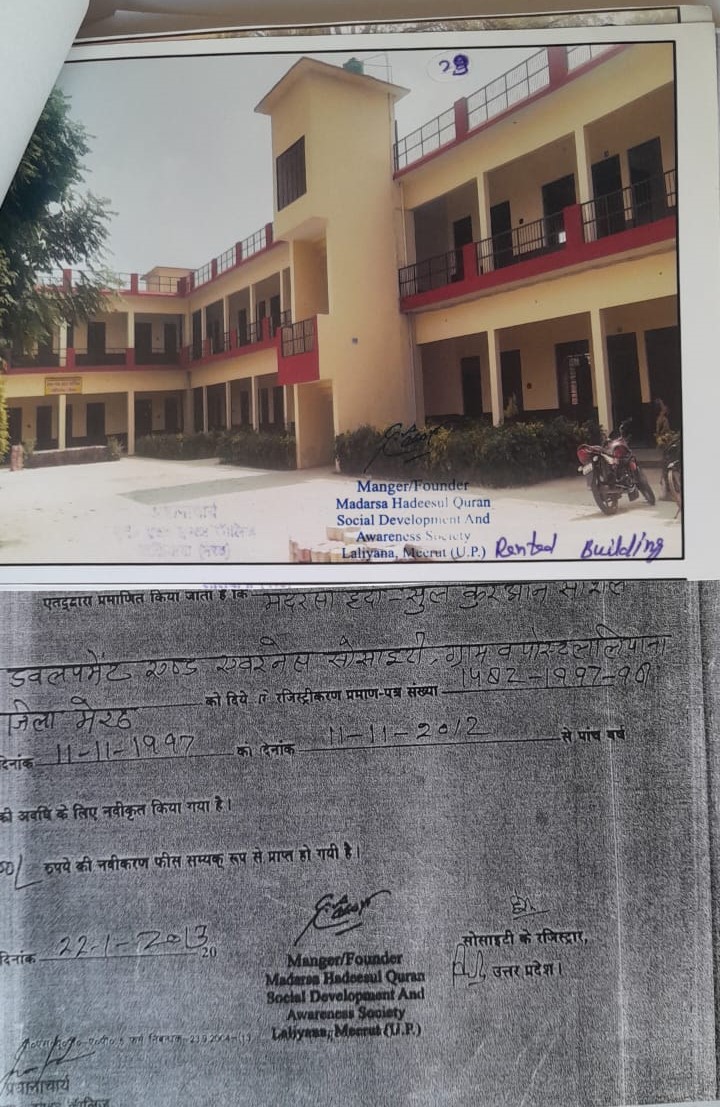 29
Manger/Founder
Madarsa Hadeesul Quran
Social Development And
Awareness Society
Laliyana, Meerut (U.P.)
Rented Building
एतद्द्वारा प्रमाणित किया जाता है कि मदरसा हदी-सुल कुरआन सोशल
डवलपमेंट एण्ड एवरनेस सोसाइटी, ग्राम व पोस्ट लालियाना
जिला मेरठ को दिये रजिस्ट्रीकरण प्रमाण-पत्र संख्या 1482-1997-98
दिनांक 11-11-1997 को दिनांक 11-11-2012 से पांच वर्ष
की अवधि के लिए नवीकृत किया गया है।
रुपये की नवीकरण फीस सम्यक् रूप से प्राप्त हो गयी है।
दिनांक 22-1-2013
20
सोसाइटी के रजिस्ट्रार,
उत्तर प्रदेश।
Manger/Founder
Madarsa Hadeesul Quran
Social Development And
Awareness Society
Laliyana, Meerut (U.P.)
प्रधानाचार्य